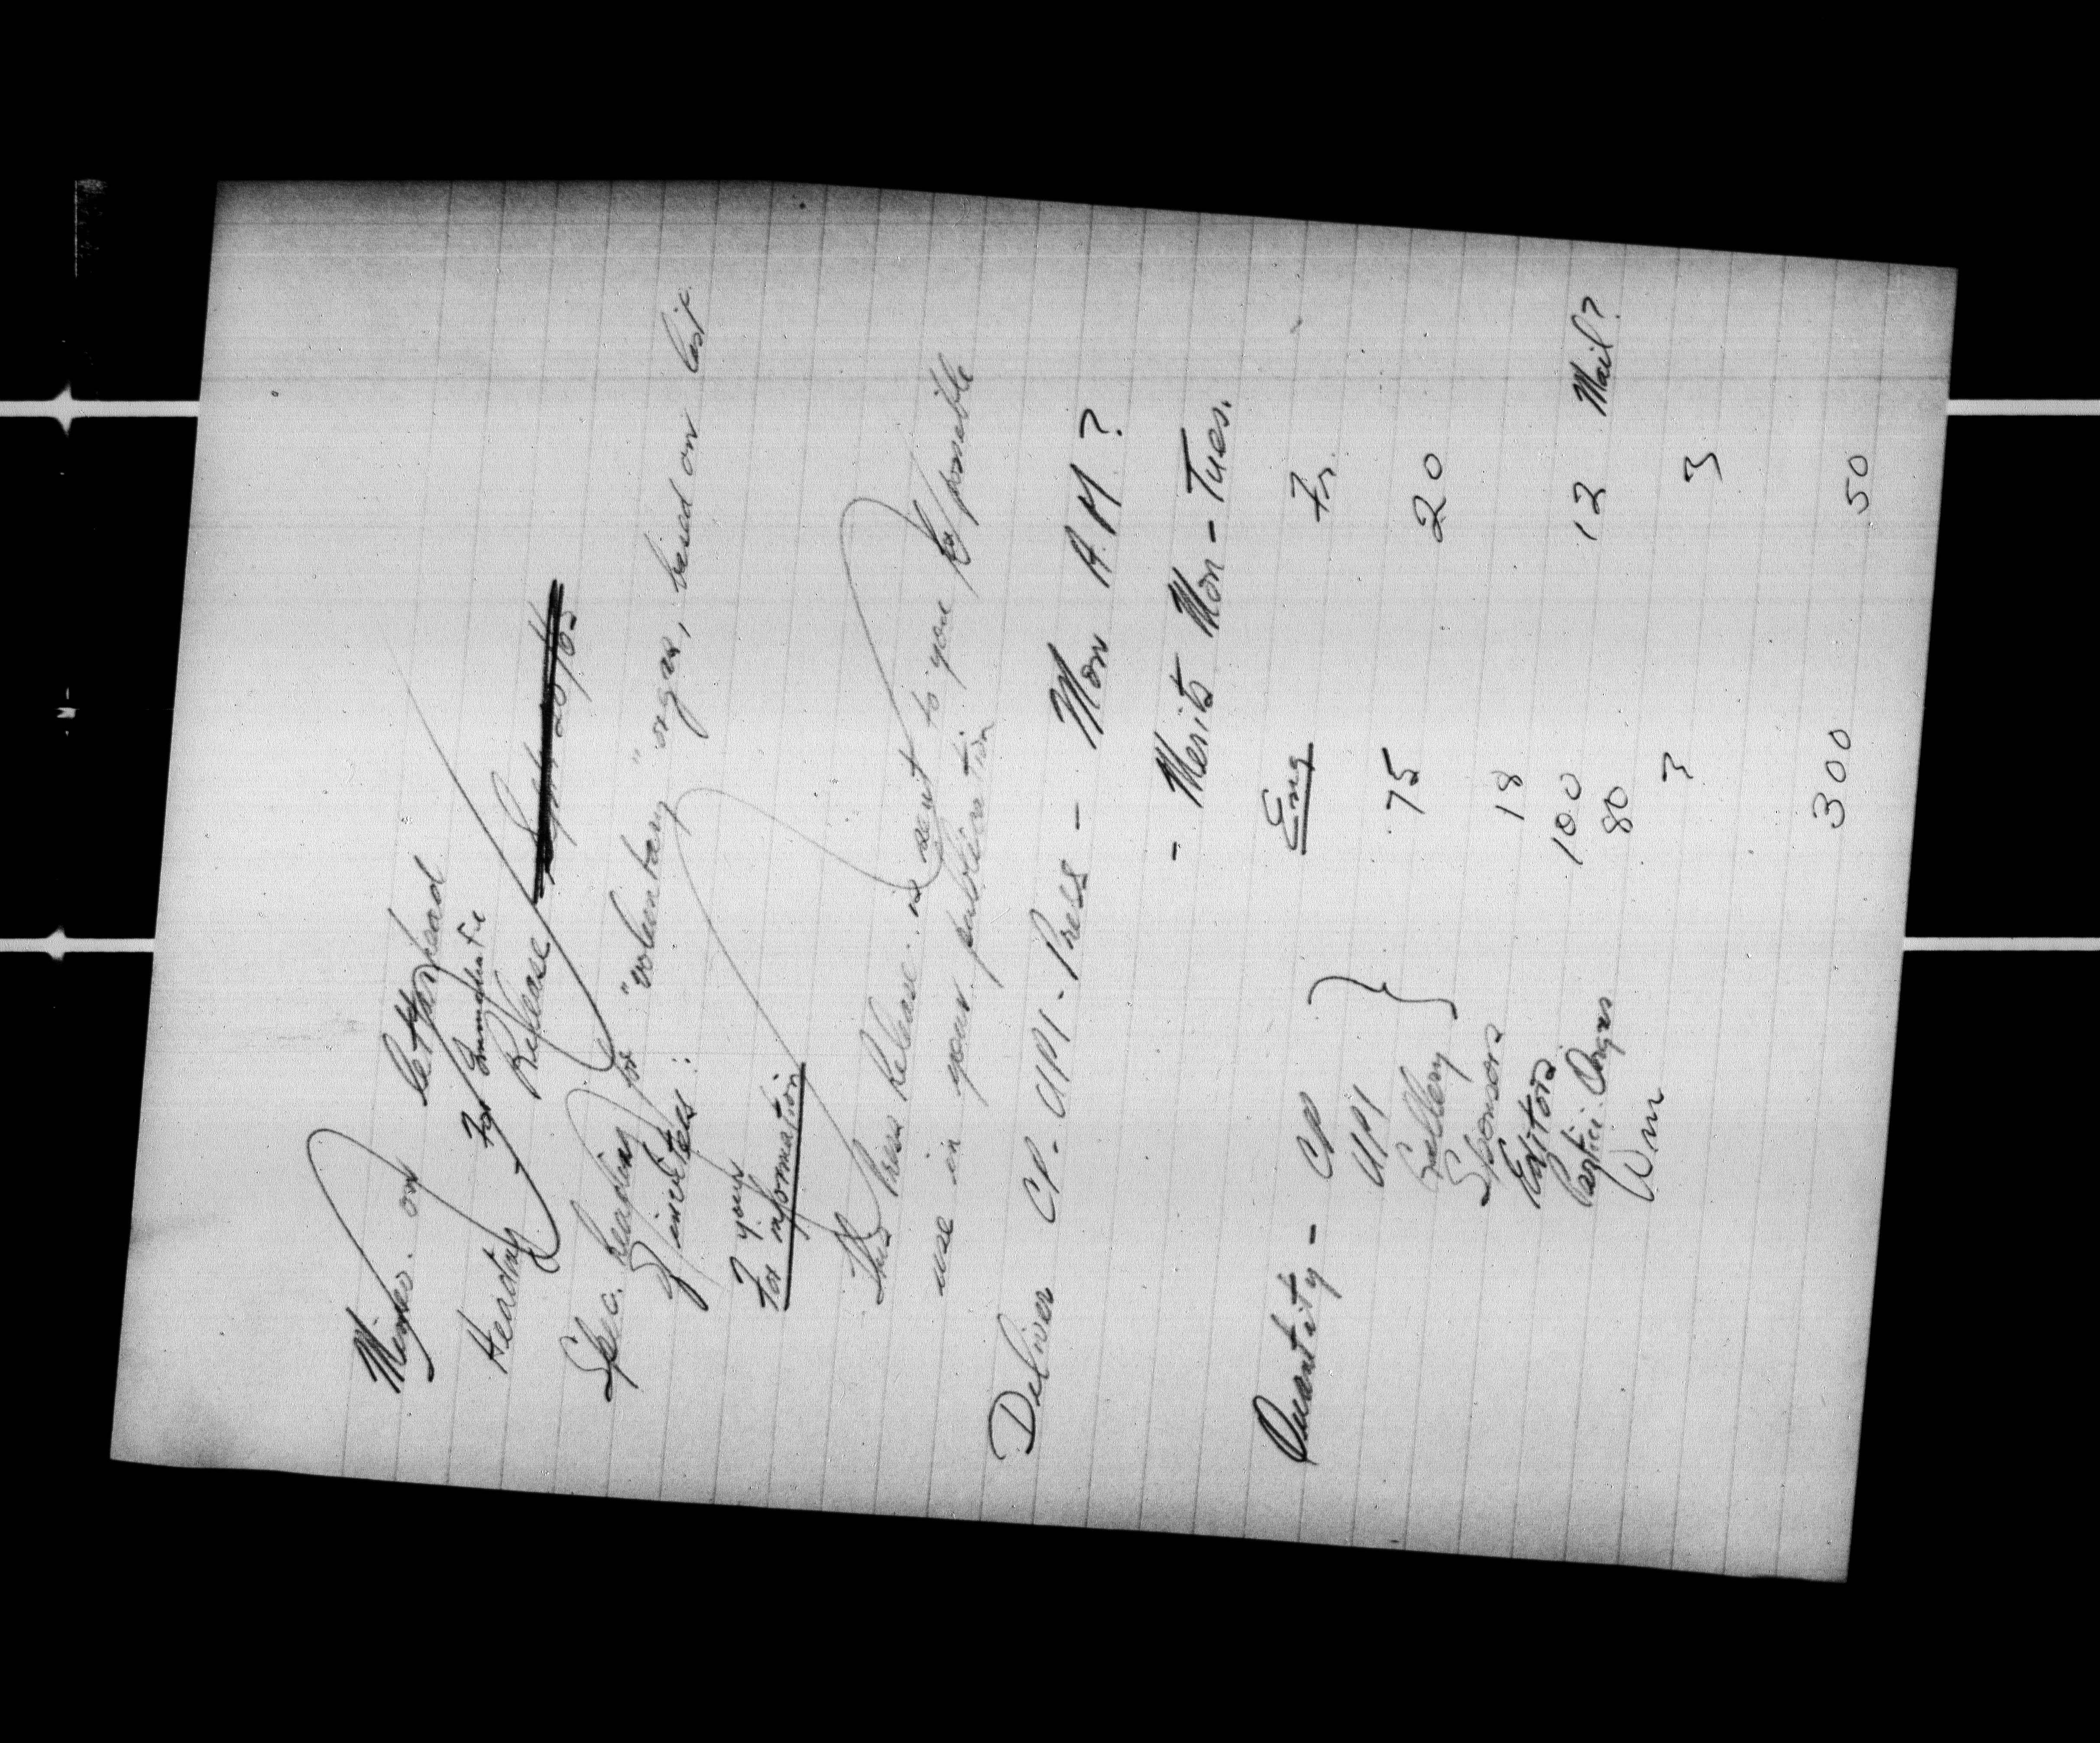 Mimeo. on letterhead
Heading For Immediate
Release Sept 20/65
Spec. heading for "voluntary" orgzs, based on list
For your
information
This Press Release is sent to you for possible
use in your publication
Deliver CP. UPI - Press - Mon A.M?
- Merits Mon - Tues.
Eng Fr.
Quantity - CP
UPI 75 20
Gallery
Sponsors 18
Editors 100 12 Mail?
Partici. Orgzs 80
Wm 3 3
300 50